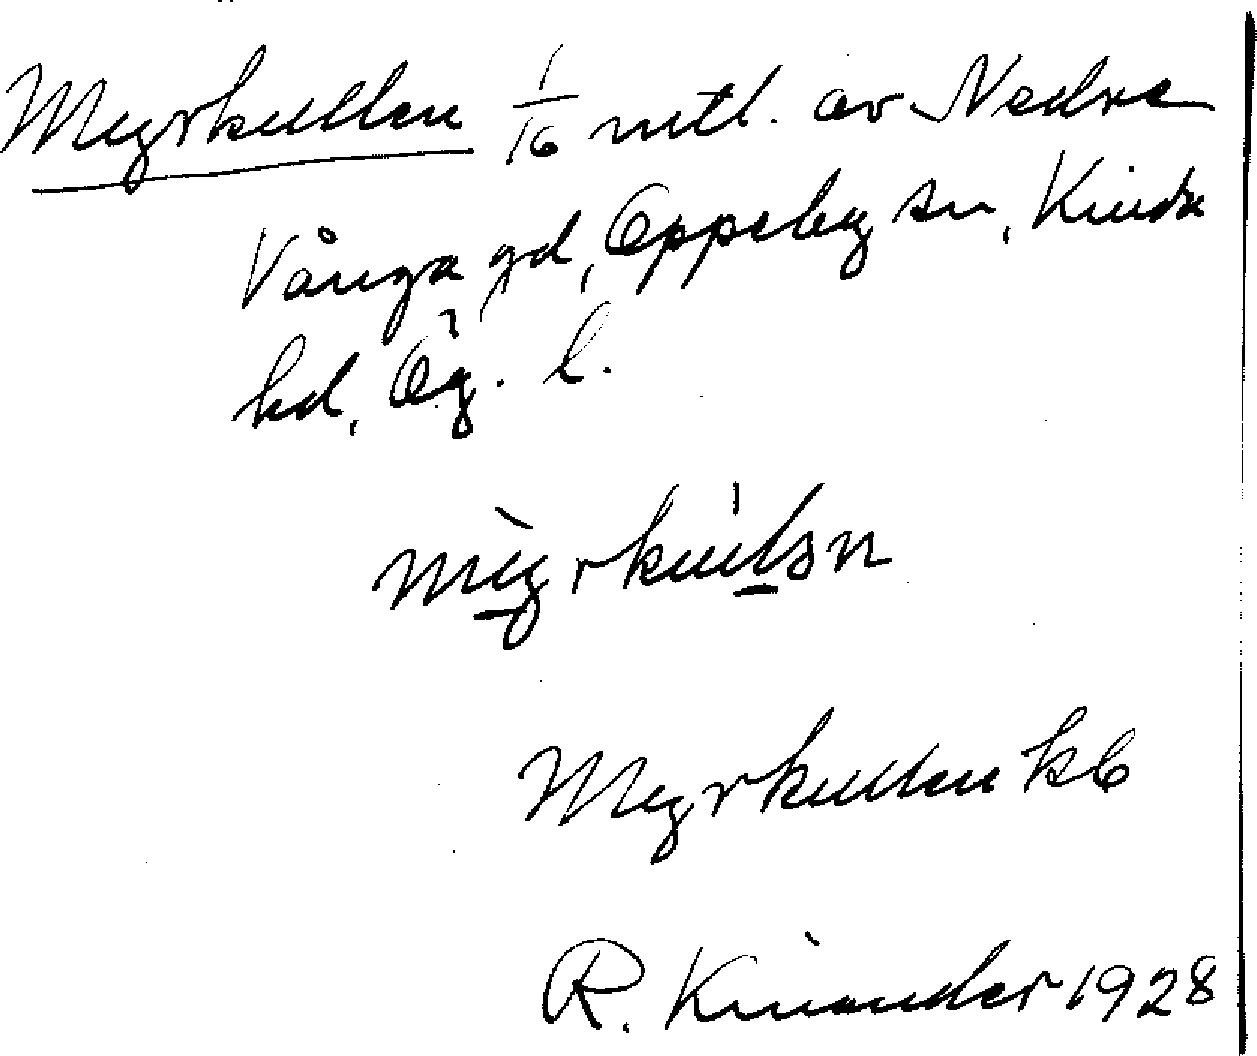 Myrkullen 1/16 mtl. av Nedre
Vånga gd, Oppeby sn, Kinda
hd, Ög. l.
Myrkullen kb
R. Kinander 1928